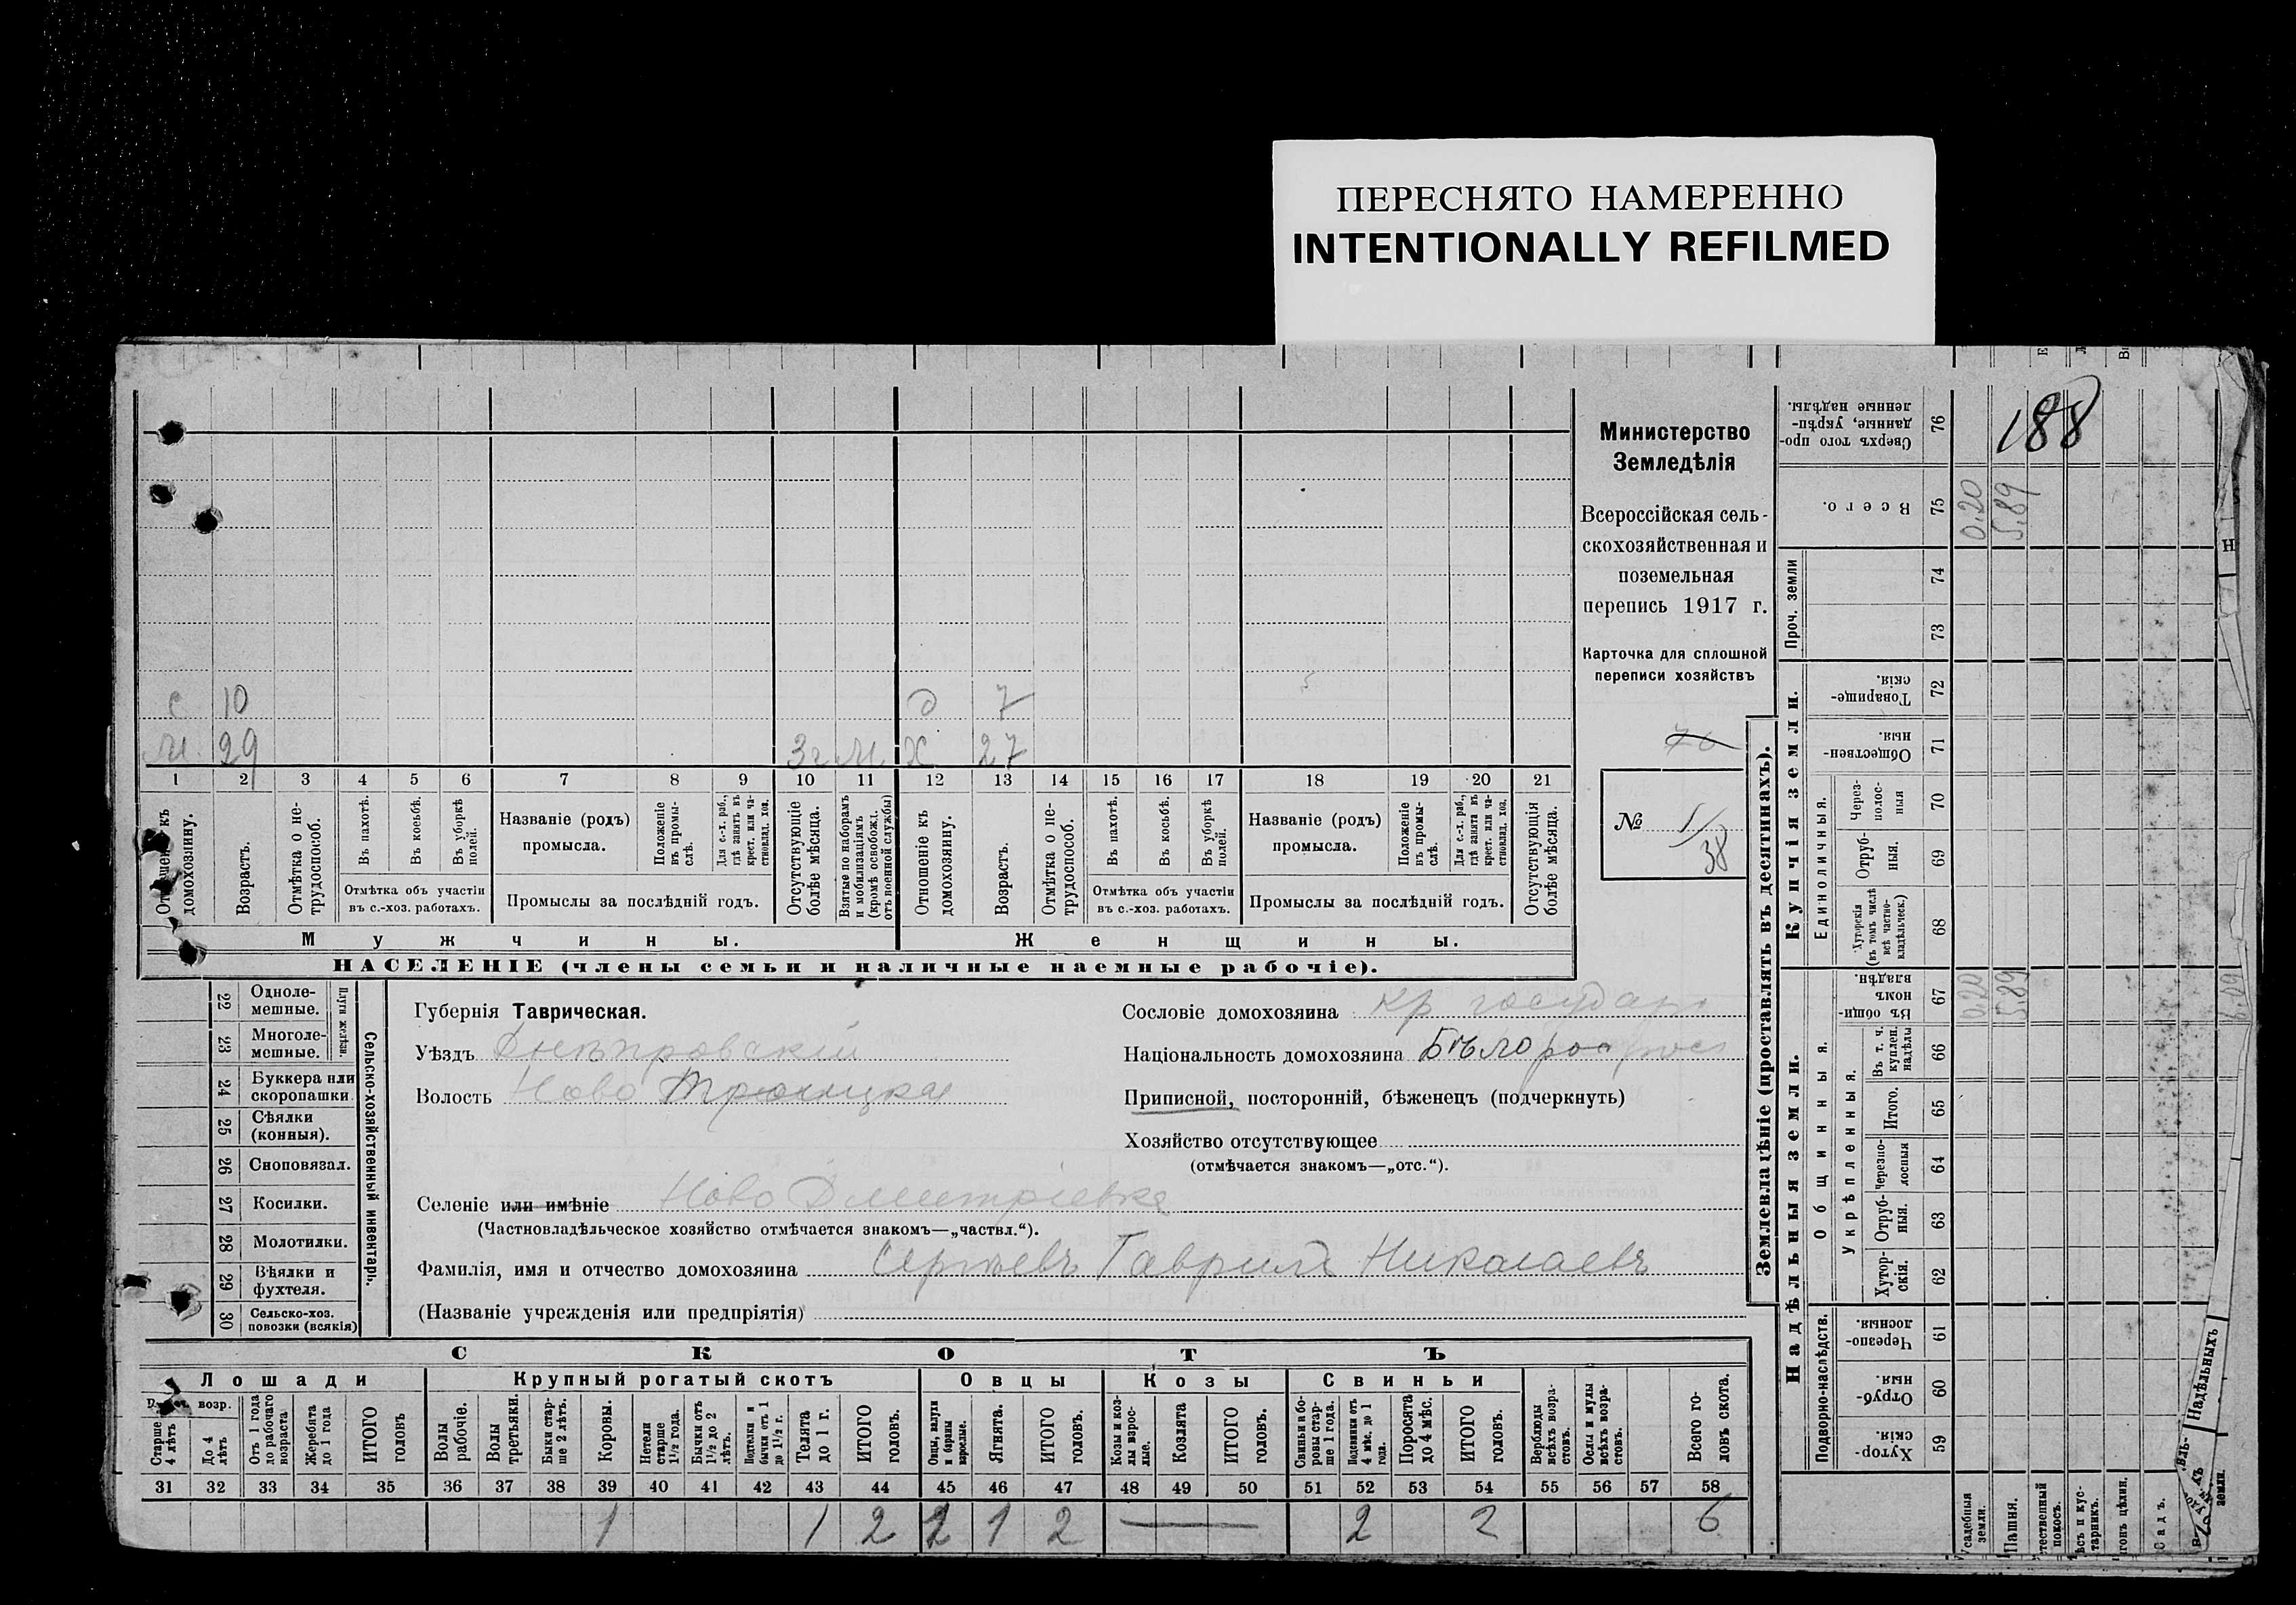 ПЕРЕСНЯТО НАМЕРЕННО
INTENTIONALLY REFILMED
188
Министерство
Земледѣлія
Всероссійская сель-
скохозяйственная и
поземельная
перепись 1917 г.
Карточка для сплошной
переписи хозяйствъ
76
№ 1/38
с 10 д 7
м. 29 3г м Х 27
1 2 3 4 5 6 7 8 9 10 11 12 13 14 15 16 17 18 19 20 21
домохозяину.
Возрастъ.
Отмѣтка о не-
трудоспособ.
Въ пахотѣ.
Въ косьбѣ.
Въ уборкѣ
полей.
Отмѣтка объ участіи
въ с.-хоз. работахъ.
Названіе (родъ)
промысла.
Положеніе
въ промы-
слѣ.
Для с.-х. раб.,
гдѣ занятъ въ
крест. или ча-
стновлад. хоз.
Промыслы за послѣдній годъ.
Отсутствующіе
болѣе мѣсяца.
Взятые по наборамъ
и мобилизаціямъ
(кромѣ освобожд.
отъ военной службы)
Отношеніе къ
домохозяину.
Возрастъ.
Отмѣтка о не-
трудоспособ.
Въ пахотѣ.
Въ косьбѣ.
Въ уборкѣ
полей.
Отмѣтка объ участіи
въ с.-хоз. работахъ.
Названіе (родъ)
промысла.
Положеніе
въ промы-
слѣ.
Для с.-х. раб.,
гдѣ занята въ
крест. или ча-
стновлад. хоз.
Промыслы за послѣдній годъ.
Отсутствующія
болѣе мѣсяца.
Мужчины.
Женщины.
НАСЕЛЕНІЕ (члены семьи и наличные наемные рабочіе).
22 Одноле-
мешные.
23 Многоле-
мешные.
Плуги желѣзн.
24 Буккера или
скоропашки
25 Сѣялки
(конныя).
26 Сноповязал.
27 Косилки.
28 Молотилки.
29 Вѣялки и
фухтеля.
30 Сельско-хоз.
повозки (всякія)
Сельско-хозяйственный инвентарь.
Губернія Таврическая.
Уѣздъ Днѣпровскій
Волость Ново Троицкая
Сословіе домохозяина кр
Національность домохозяина
Приписной, посторонній, бѣженецъ (подчеркнуть)
Хозяйство отсутствующее
(отмѣчается знакомъ—„отс.“).
Селеніе или имѣніе Ново Дмитріевка
(Частновладѣльческое хозяйство отмѣчается знакомъ—„частвл.“).
Фамилія, имя и отчество домохозяина Сергѣевъ Гаврила Николаевъ
(Названіе учрежденія или предпріятія)
СКОТЪ
Лошади
Крупный рогатый скотъ
Овцы
Козы
Свиньи
возр.
Старше
4 лѣтъ
До 4
лѣтъ
Отъ 1 года
до рабочаго
возраста
Жеребята
до 1 года
ИТОГО
головъ
Волы
рабочіе.
Волы
третьяки.
Быки стар-
ше 2 лѣтъ.
Коровы.
Нетели
старше
1½ года.
Бычки отъ
1½ до 2
лѣтъ.
Подтелки и
бычки отъ 1
до 1½ г.
Телята
до 1 г.
ИТОГО
головъ.
Овцы, валухи
и бараны
взрослые.
Ягнята.
ИТОГО
головъ.
Козы и коз-
лы взрос-
лые.
Козлята
ИТОГО
головъ.
Свиньи и бо-
ровы стар-
ше 1 года.
Подсвинки отъ
4 мѣс. до 1
года.
Поросята
до 4 мѣс.
ИТОГО
головъ.
Верблюды
всѣхъ возра-
стовъ.
Ослы и мулы
всѣхъ возра-
стовъ.
Всего го-
ловъ скота.
31 32 33 34 35 36 37 38 39 40 41 42 43 44 45 46 47 48 49 50 51 52 53 54 55 56 57 58
1 1 2 2 1 2 2 2 6
Землевладѣніе (проставлять въ десятинахъ).
Надѣльныя земли.
Купчія земли.
Проч. земли
Подворно-наслѣдств.
Общинныя.
Укрѣпленныя.
Единоличныя.
Сверхъ того про-
данные, укрѣп-
ленные надѣлы.
76
Всего.
75
74
73
Товарище-
скія.
72
Обществен-
ныя.
71
Через-
полос-
ныя
70
Отруб-
ныя.
69
Хуторскія
(въ томъ числѣ
всѣ частно-
владѣльческ.)
68
Въ общин-
номъ
владѣн.
67
Въ т. ч.
куплен.
надѣлы
66
Итого.
65
Черезпо-
лосныя
64
Отруб-
ныя.
63
Хутор-
скія.
62
Черезпо-
лосныя.
61
Отруб-
ныя.
60
Хутор-
скія.
59
0.20 0.20
5.89 5.89
6.09
Усадебныя
земли.
Пашня.
покосъ.
тарникъ.
Садъ.
Надѣльныхъ
земли.